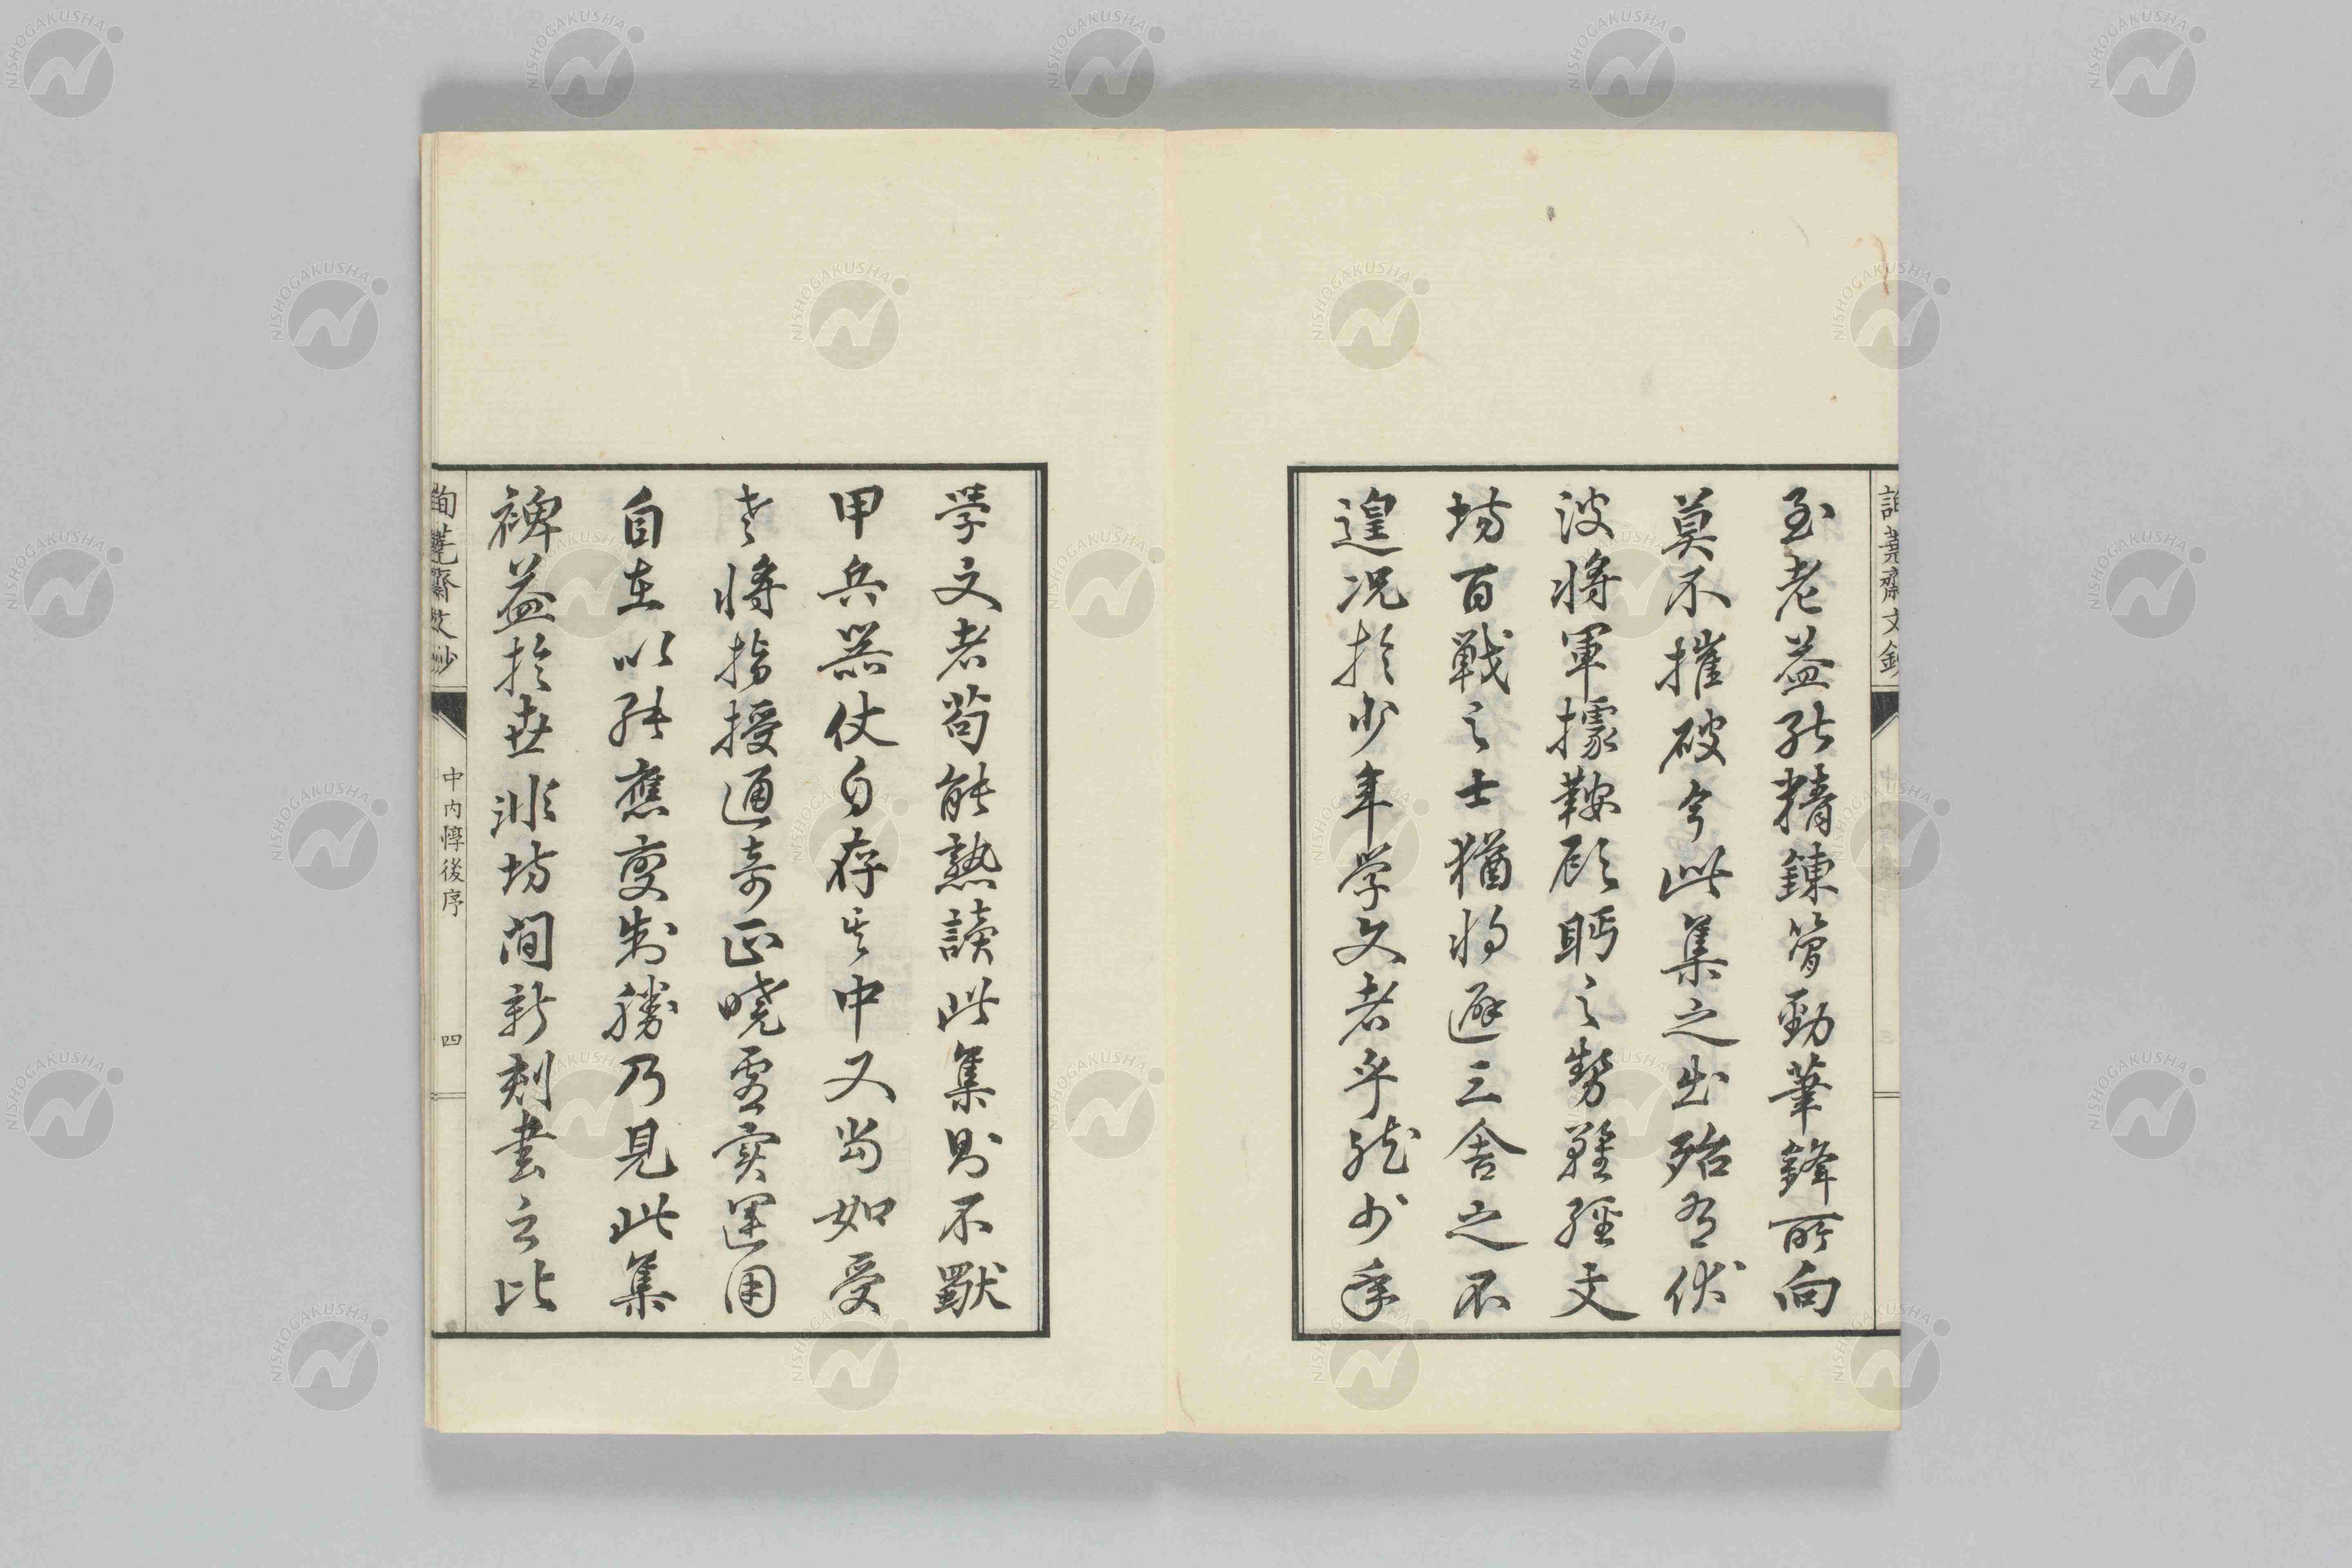 詢蕘齋文鈔
至老益能精錬簡勁筆鋒所向
莫不摧破今此集之出殆有伏
波將軍據鞍顧眄之勢雖經文
場百戰之士猶將避三舍之不
遑況於少年学文者乎然少年
学文者苟能熟讀此集則不獨
甲兵器仗自存其中又當如受
老將指授通奇正曉虛實運用
自在以能應變制勝乃見此集
裨益於世非坊間新刻書之比
詢蕘齋文鈔
中内惇後序
四